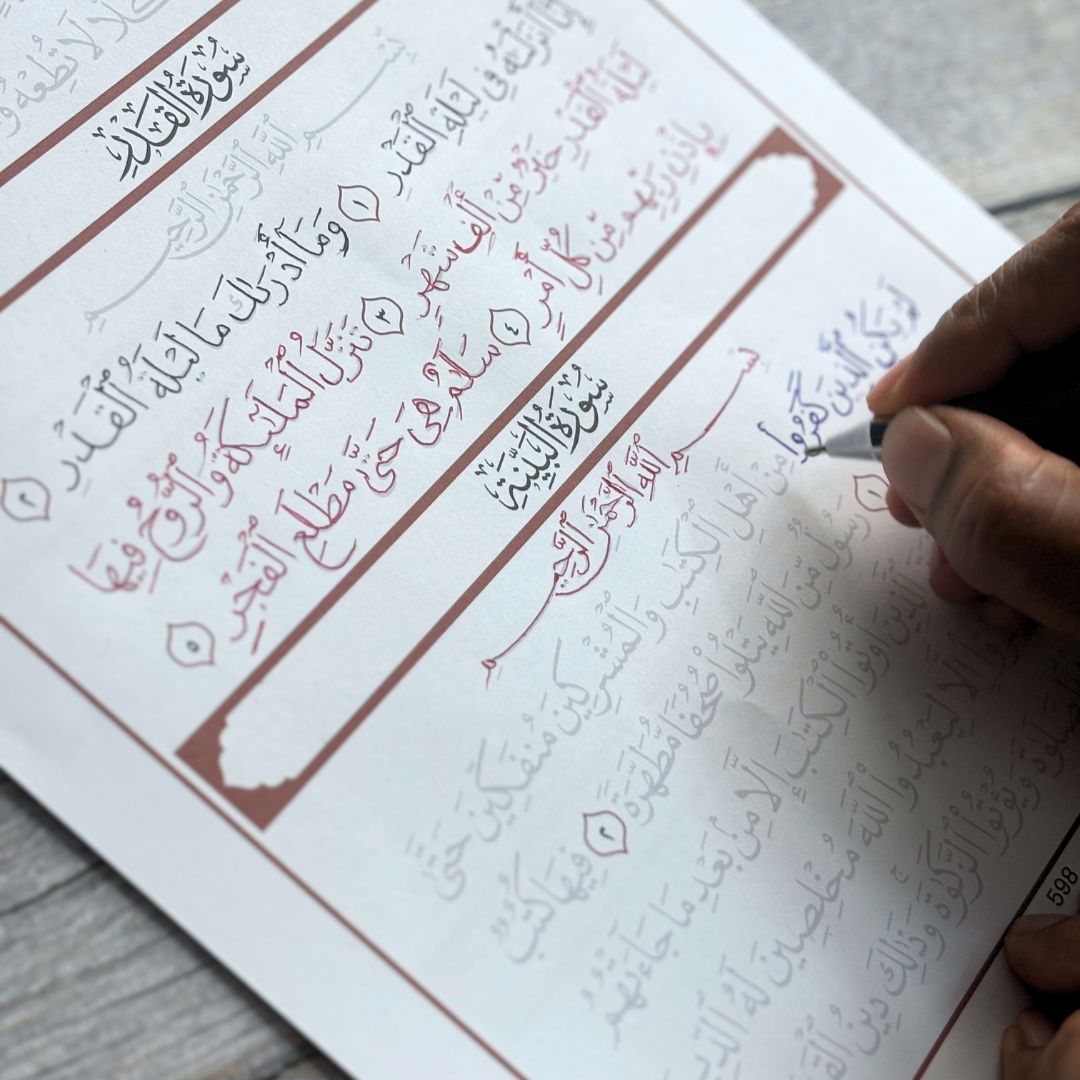 كَلَّا لَا تُطِعْهُ وَ
سُورَةُ الْقَدْرِ
بِسْمِ اللَّهِ الرَّحْمَٰنِ الرَّحِيمِ
إِنَّا أَنزَلْنَٰهُ فِي لَيْلَةِ ٱلْقَدْرِ ١ وَمَآ أَدْرَىٰكَ مَا لَيْلَةُ ٱلْقَدْرِ ٢
لَيْلَةُ ٱلْقَدْرِ خَيْرٌ مِّنْ أَلْفِ شَهْرٍ ٣ تَنَزَّلُ ٱلْمَلَٰٓئِكَةُ وَٱلرُّوحُ فِيهَا
بِإِذْنِ رَبِّهِم مِّن كُلِّ أَمْرٍ ٤ سَلَٰمٌ هِيَ حَتَّىٰ مَطْلَعِ ٱلْفَجْرِ ٥
سُورَةُ الْبَيِّنَةِ
بِسْمِ ٱللَّهِ ٱلرَّحْمَٰنِ ٱلرَّحِيمِ
لَمْ يَكُنِ ٱلَّذِينَ كَفَرُوا۟ مِنْ أَهْلِ ٱلْكِتَٰبِ وَٱلْمُشْرِكِينَ مُنفَكِّينَ حَتَّىٰ
١ رَسُولٌ مِّنَ ٱللَّهِ يَتْلُوا۟ صُحُفًا مُّطَهَّرَةً ٢ فِيهَا كُتُبٌ
ٱلَّذِينَ أُوتُوا۟ ٱلْكِتَٰبَ إِلَّا مِنۢ بَعْدِ مَا جَآءَتْهُمُ
إِلَّا لِيَعْبُدُوا۟ ٱللَّهَ مُخْلِصِينَ لَهُ ٱلدِّينَ
ٱلصَّلَوٰةَ وَيُؤْتُوا۟ ٱلزَّكَوٰةَ وَذَٰلِكَ دِينُ
598